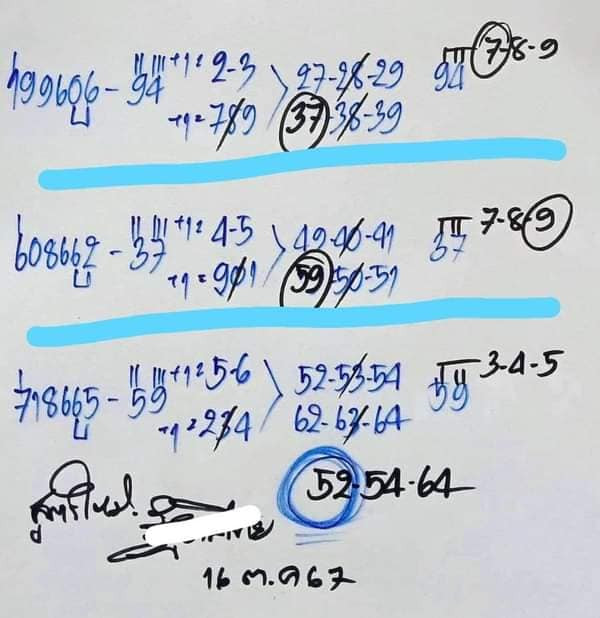 799606 - 94 +1= 2-3 27-28-29 94 7-8-9
-1= 789 37-38-39
608662 - 37 +1= 4-5 49-40-41 37 7-8-9
-1= 901 59-50-51
718665 - 59 +1= 5-6 52-53-54 59 3-4-5
-1= 234 62-63-64
52-54-64
16 ต.ค 67